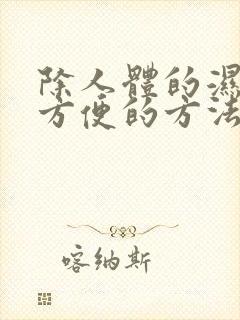 除人體的濕
方便的方法
喀納斯